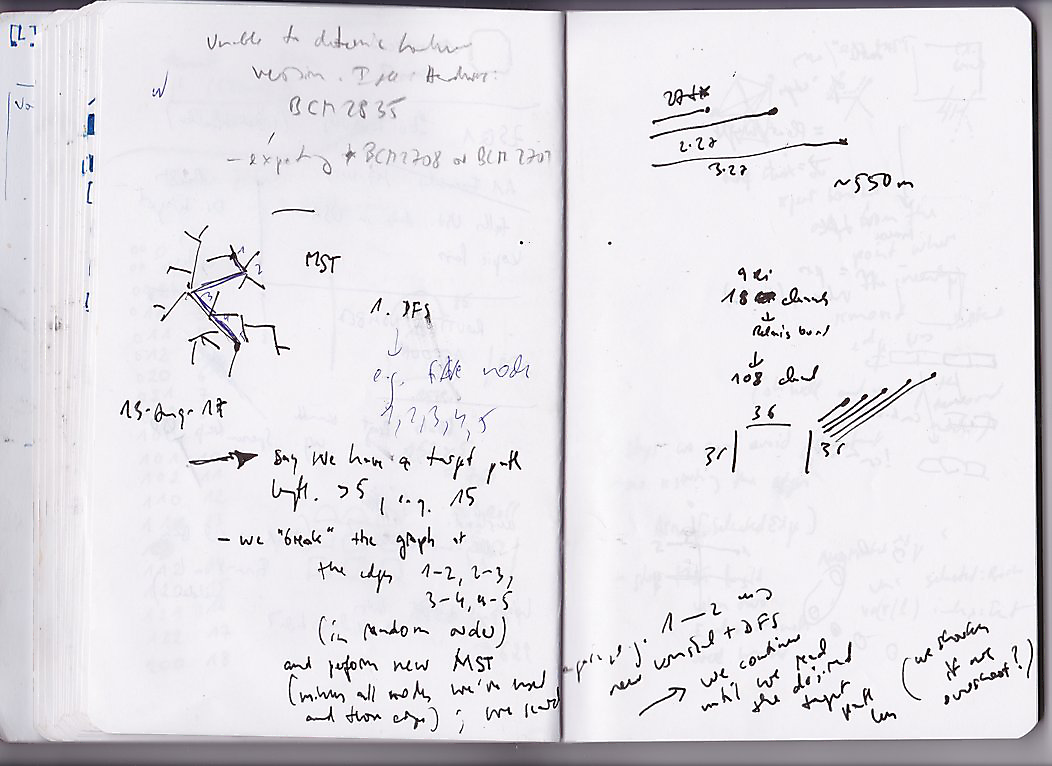 Unable to determine hardware
version. I see Hardware:
BCM2835
- expecting BCM2708 or BCM2709
MST
1
2
3
1. DFS
↓
e.g. node
1, 2, 3, 4, 5
15-Aug-17
→ say we have a target path
length >5, e.g. 15
- we "break" the graph at
the edges 1-2, 2-3,
3-4, 4-5
(in random order)
and perform new MST
(minus all nodes we've used
and their edges);
2.27
3.27
~550m
18
↓
↓
108
36
36
36
1—2
new + DFS
→ we continue
until we reach
the desired
target
path
len
(we shorten
if we
overshoot?)